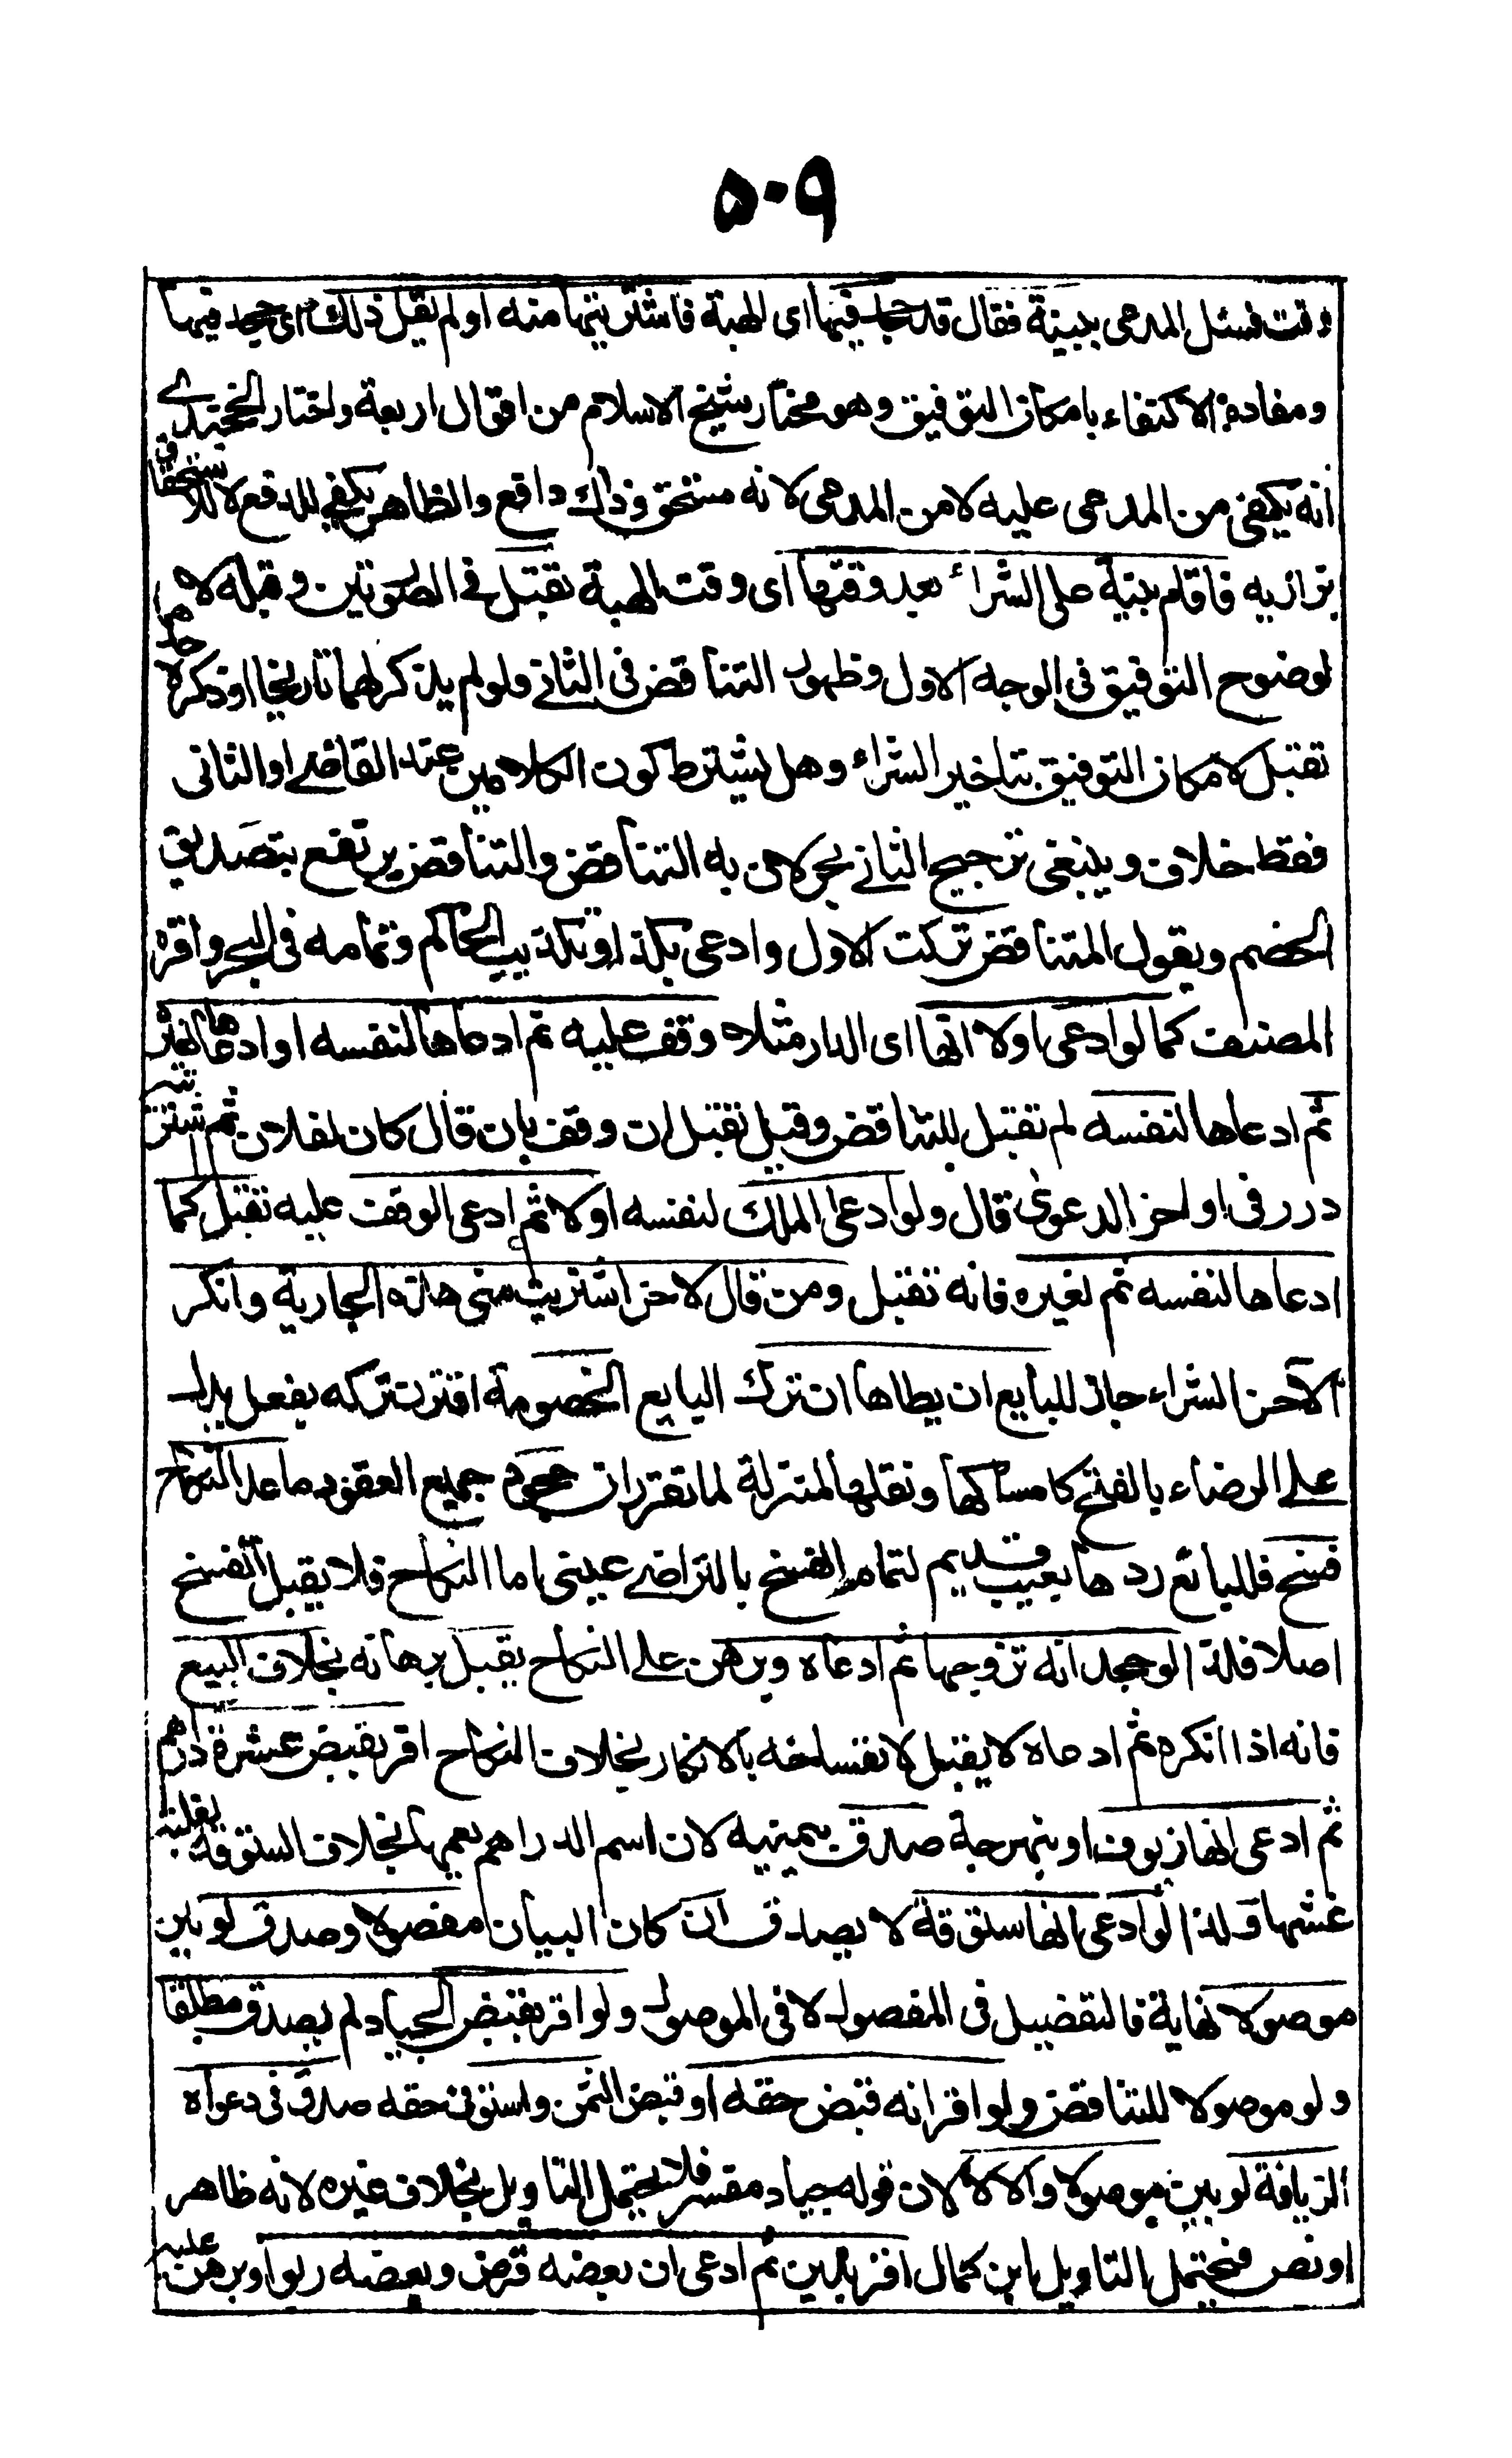 ٥٠٩
وقت فسئل المدعى ببينة فقال قد جحدفيها اى الهبة فاشتريتها منه او لم يقل ذلك اى جحدفيها
ومفاده الاكتفاء بامكان التوفيق وهو مختار شيخ الاسلام من اقوال اربعة واختار الخجندے
انه يكفى من المدعى عليه لا من المدعى لانه مستحق وذاك دافع والظاهر يكفى للدفع لا للاستحقاق
بزازيه فاقام بينة على الشراء بعد وقتها اى وقت الهبة تقبل فى الصورتين وقبله لا
لوضوح التوفيق فى الوجه الاول وظهور التناقض فى الثانے ولو لم يذكر لهما تاريخا اوذكره لاحدهما
تقبل لامكان التوفيق بتاخير الشراء وهل يشترط كون الكلامين عند القاضے او الثانى
فقط خلاف وينبغى ترجيح الثانے بحر لان به التناقض والتناقض يرتفع بتصديق
الخصم وبقول المتناقض تركت الاول وادعى بكذا وبتكذيب الحاكم وتمامه فى البحر واقره
المصنف كما لوادعى اولا انها اى الدار مثلا وقف عليه ثم ادعاها لنفسه او ادعاها لغيره
ثم ادعاها لنفسه لم تقبل للتناقض وقيل تقبل ان وقف بان قال كان لفلان ثم اشتريته
درر فى اواخر الدعوىٰ قال ولو ادعى الملك لنفسه اولا ثم ادعى الوقف عليه تقبل كما
ادعاها لنفسه ثم لغيره فانه تقبل ومن قال لاخر اشتريت منى هذه الجارية وانكر
الآخر الشراء جاز للبايع ان يطاها ان ترك البايع الخصومة اقترن تركه بفعل يدل
على الرضاء بالفسخ كامساكها ونقلها لمنزله لما تقرر ان جحود جميع العقود ما عدا النكاح
فسخ فللبائع ردها بعيب قديم لتمام الفسخ بالتراضے عينى اما النكاح فلا يقبل الفسخ
اصلا فلذا لو جحد انه تزوجها ثم ادعاه وبرهن على النكاح يقبل برهانه بخلاف البيع
فانه اذا انكره ثم ادعاه لا يقبل لانفساخه بالانكار بخلاف النكاح اقر بقبض عشرة دراهم
ثم ادعى انها زيوف او نبهرجة صدق بيمينه لان اسم الدراهم يعمها بخلاف الستوقة لغلبة
غشها ولذا لو ادعى انها ستوقة لا يصدق ان كان البيان مفصولا وصدق لو بين
موصولا نهاية فالتفصيل فى المفصول لا فى الموصول ولو اقر بقبض الجياد لم يصدق مطلقا
ولو موصولا للتناقض ولو اقر انه قبض حقه او قبض الثمن واستوفى حقه صدق فى دعواه
الزيافة لو بين موصولا والا لا لان قوله جياد مفسر فلا يحتمل التاويل بخلاف غيره لانه ظاهر
او نص فيحتمل التاويل ابن كمال اقر بدين ثم ادعى ان بعضه قرض وبعضه ربوا وبرهن عليه